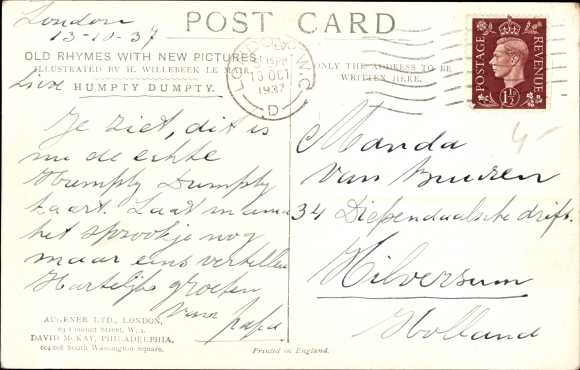 London
13-10-37
POST CARD
OLD RHYMES WITH NEW PICTURES
ILLUSTRATED BY H. WILLEBEEK LE MAIR.
HUMPTY DUMPTY.
ONLY THE ADDRESS TO BE
WRITTEN HERE.
LONDON W.C.
15PM
13 OCT
1937
D
POSTAGE
REVENUE
1½D
Lieve
Je ziet, dit is
nu de echte
Humpty Dumpty
kaart. Laat mama
het sprookje nog
maar eens vertellen
Hartelijke groeten
van papa
4-
Manda
van Buuren
34 Diependaalsche drift.
Hilversum
Holland
AUGENER LTD., LONDON,
63 Conduit Street, W. 1.
DAVID McKAY, PHILADELPHIA,
604-608 South Washington Square.
Printed in England.